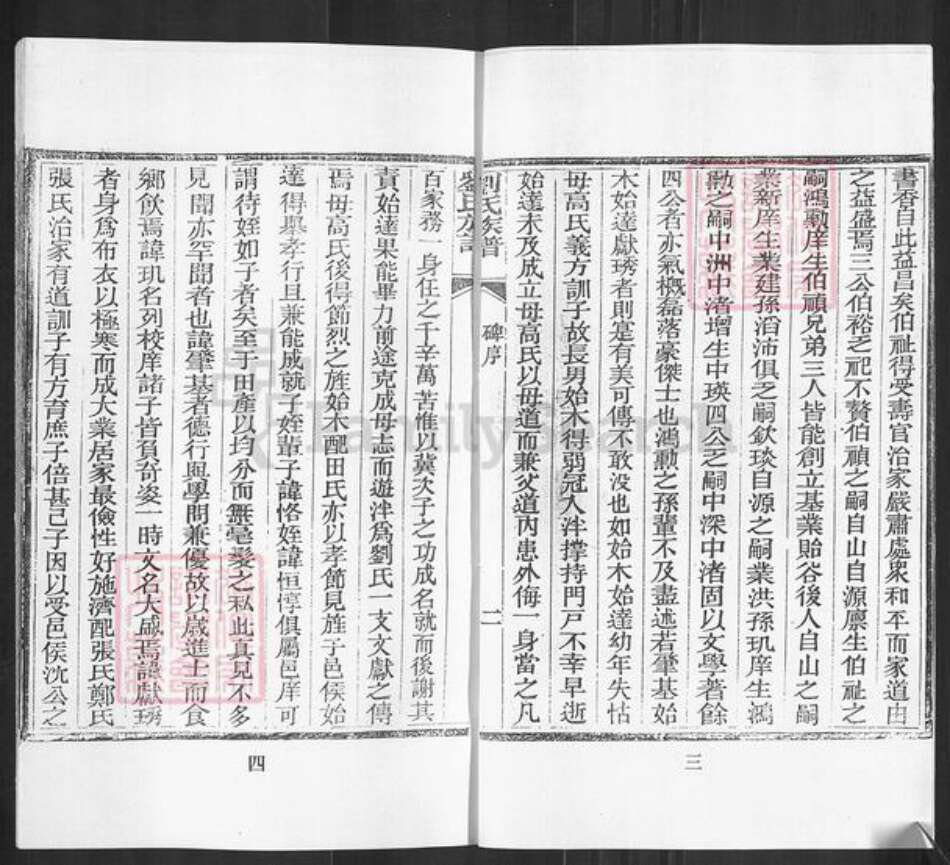 書香自此益昌矣伯祉得受壽官治家嚴肅處衆和平而家道由
之益盛焉三公伯裕之祀不贅伯禎之嗣自山自源廩生伯祉之
嗣鴻勳庠生伯禎兄弟三人皆能創立基業貽谷後人自山之嗣
業新庠生業建孫滔沛俱乏嗣欽琰自源之嗣業洪孫玑庠生鴻
勳之嗣中洲中渚增生中瑛四公乏嗣中深中渚固以文學著餘
四公者亦氣概磊落豪傑士也鴻勳之孫輩不及盡述若肇基始
木始達獻琇者則寔有美可傳不敢没也如始木始達幼年失怙
毋高氏義方訓子故長男始木得弱冠入泮撑持門戸不幸早逝
始達未及成立毋高氏以毋道而兼父道内患外侮一身當之凡
劉氏族譜
碑序
二
百家務一身任之千辛萬苦惟以冀次子之功成名就而後謝其
責始達果能畢力前途克成毋志而遊泮爲劉氏一支文獻之傳
焉毋高氏後得節烈之旌始木配田氏亦以孝節見旌于邑侯始
達得與孝行且兼能成就子姪輩子諱恪姪諱恒惇俱屬邑庠可
謂待姪如子者矣至于田產以均分而無毫髮之私此真見不多
見聞亦罕聞者也諱肇基者德行與學問兼優故以歲進士而食
鄉飲焉諱玑名列校庠諸子皆負奇姿一時文名大盛焉諱獻琇
者身爲布衣以極寒而成大業居家最儉性好施濟配張氏鄭氏
張氏治家有道訓子有方育庶子倍甚己子因以受邑侯沈公之
三
四
FamilySearch